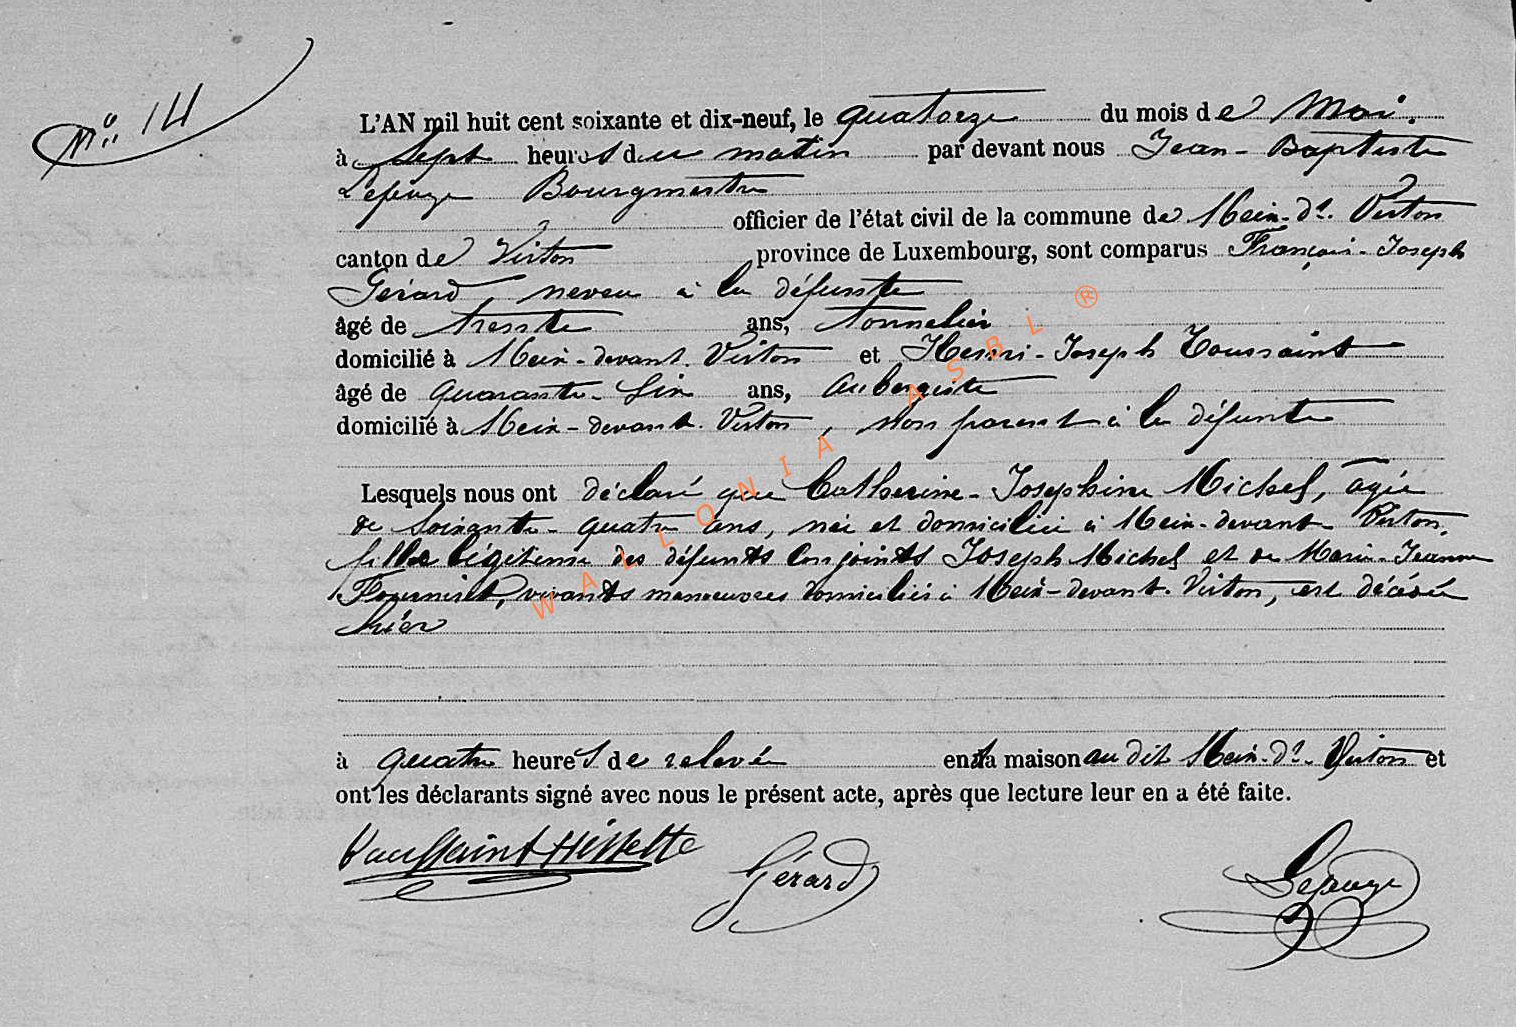 N° 14
L'AN mil huit cent soixante et dix-neuf, le quatorze du mois de Mai.
à Sept heures du matin par devant nous Jean-Baptiste
Lepouge Bourgmestre
officier de l'état civil de la commune de Meix-dt. Virton
canton de Virton province de Luxembourg, sont comparus François-Joseph
Gérard, neveu à la défunte
âgé de trente ans, tonnelier
domicilié à Meix-devant-Virton et Henri-Joseph Toussaint
âgé de quarante-six ans, aubergiste
domicilié à Meix-devant-Virton, non parent à la défunte
Lesquels nous ont déclaré que Catherine-Joséphine Michel, âgée
de soixante-quatre ans, née et domiciliée à Meix-devant-Virton,
fille légitime des défunts conjoints Joseph Michel et de Marie-Jeanne
Fourniret, vivants manoeuvres domiciliés à Meix-devant-Virton, est décédée
hier
à quatre heures de relevée en sa maison au dit Meix-dt-Virton et
ont les déclarants signé avec nous le présent acte, après que lecture leur en a été faite.
Toussaint Gérard
WALLONIA ASBL ®